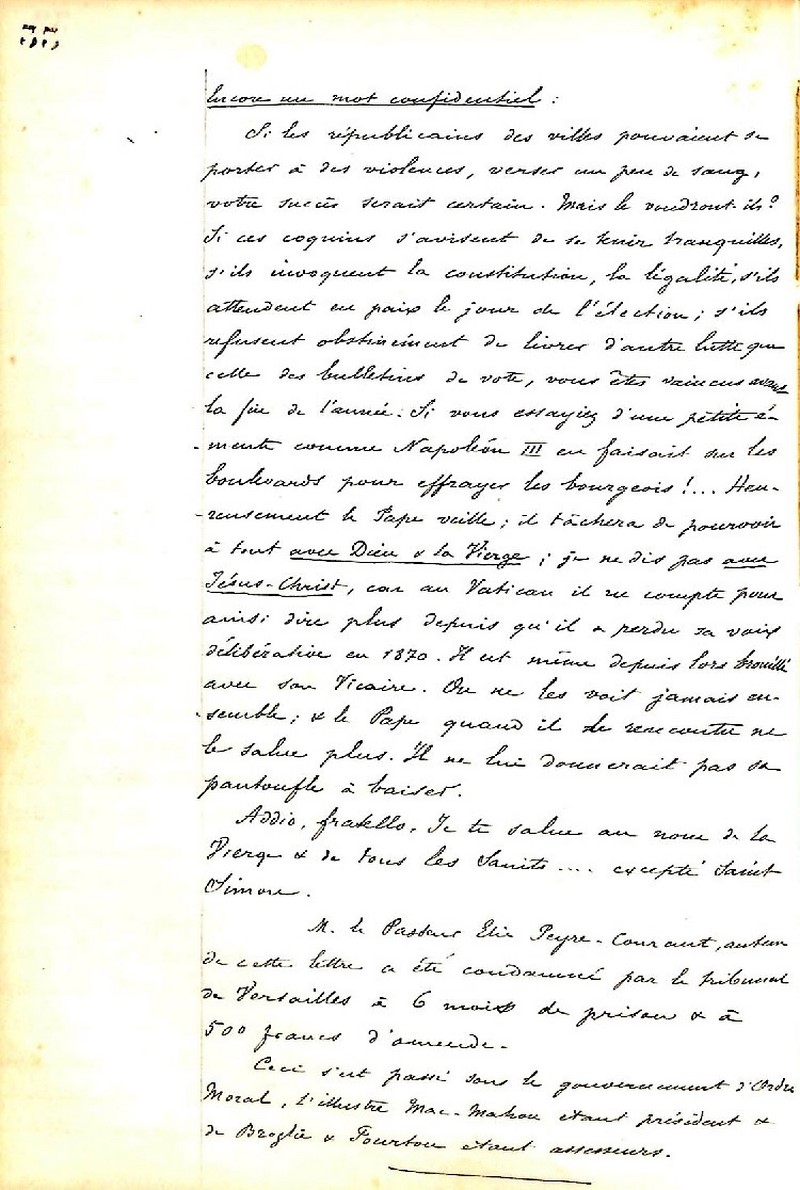 Encore un mot confidentiel :
Si les républicains des villes pouvaient se
porter à des violences, verser un peu de sang,
votre succès serait certain. Mais le voudront-ils?
Si ces coquins s'avisent de se tenir tranquilles,
s'ils invoquent la constitution, la légalité, s'ils
attendent en paix le jour de l'élection ; s'ils
refusent obstinément de livrer d'autre lutte que
celle des bulletins de vote, vous êtes vaincus avant
la fin de l'année. Si vous essayiez d'une petite é-
-meute comme Napoléon III en faisait sur les
boulevards pour effrayer les bourgeois !... Heu-
-reusement le Pape veille ; il tâchera de pourvoir
à tout avec Dieu & la Vierge ; je ne dis pas avec
Jésus-Christ, car au Vatican il ne compte pour
ainsi dire plus depuis qu'il a perdu sa voix
délibérative en 1870. Il est même depuis lors brouillé
avec son Vicaire. On ne les voit jamais en-
-semble ; & le Pape quand il le rencontre ne
le salue plus. Il ne lui donnerait pas sa
pantoufle à baiser.
Addio, fratello, Je te salue au nom de la
Vierge & de tous les Saints .... excepté Saint
Simon.
M. le Pasteur Elie Peyre-Courant, auteur
de cette lettre a été condamné par le tribunal
de Versailles à 6 mois de prison & à
500 francs d'amende.
Ceci s'est passé sous le gouvernement d'Ordre
Moral, l'illustre Mac-Mahon étant président &
de Broglie & Fourtou étant assesseurs.